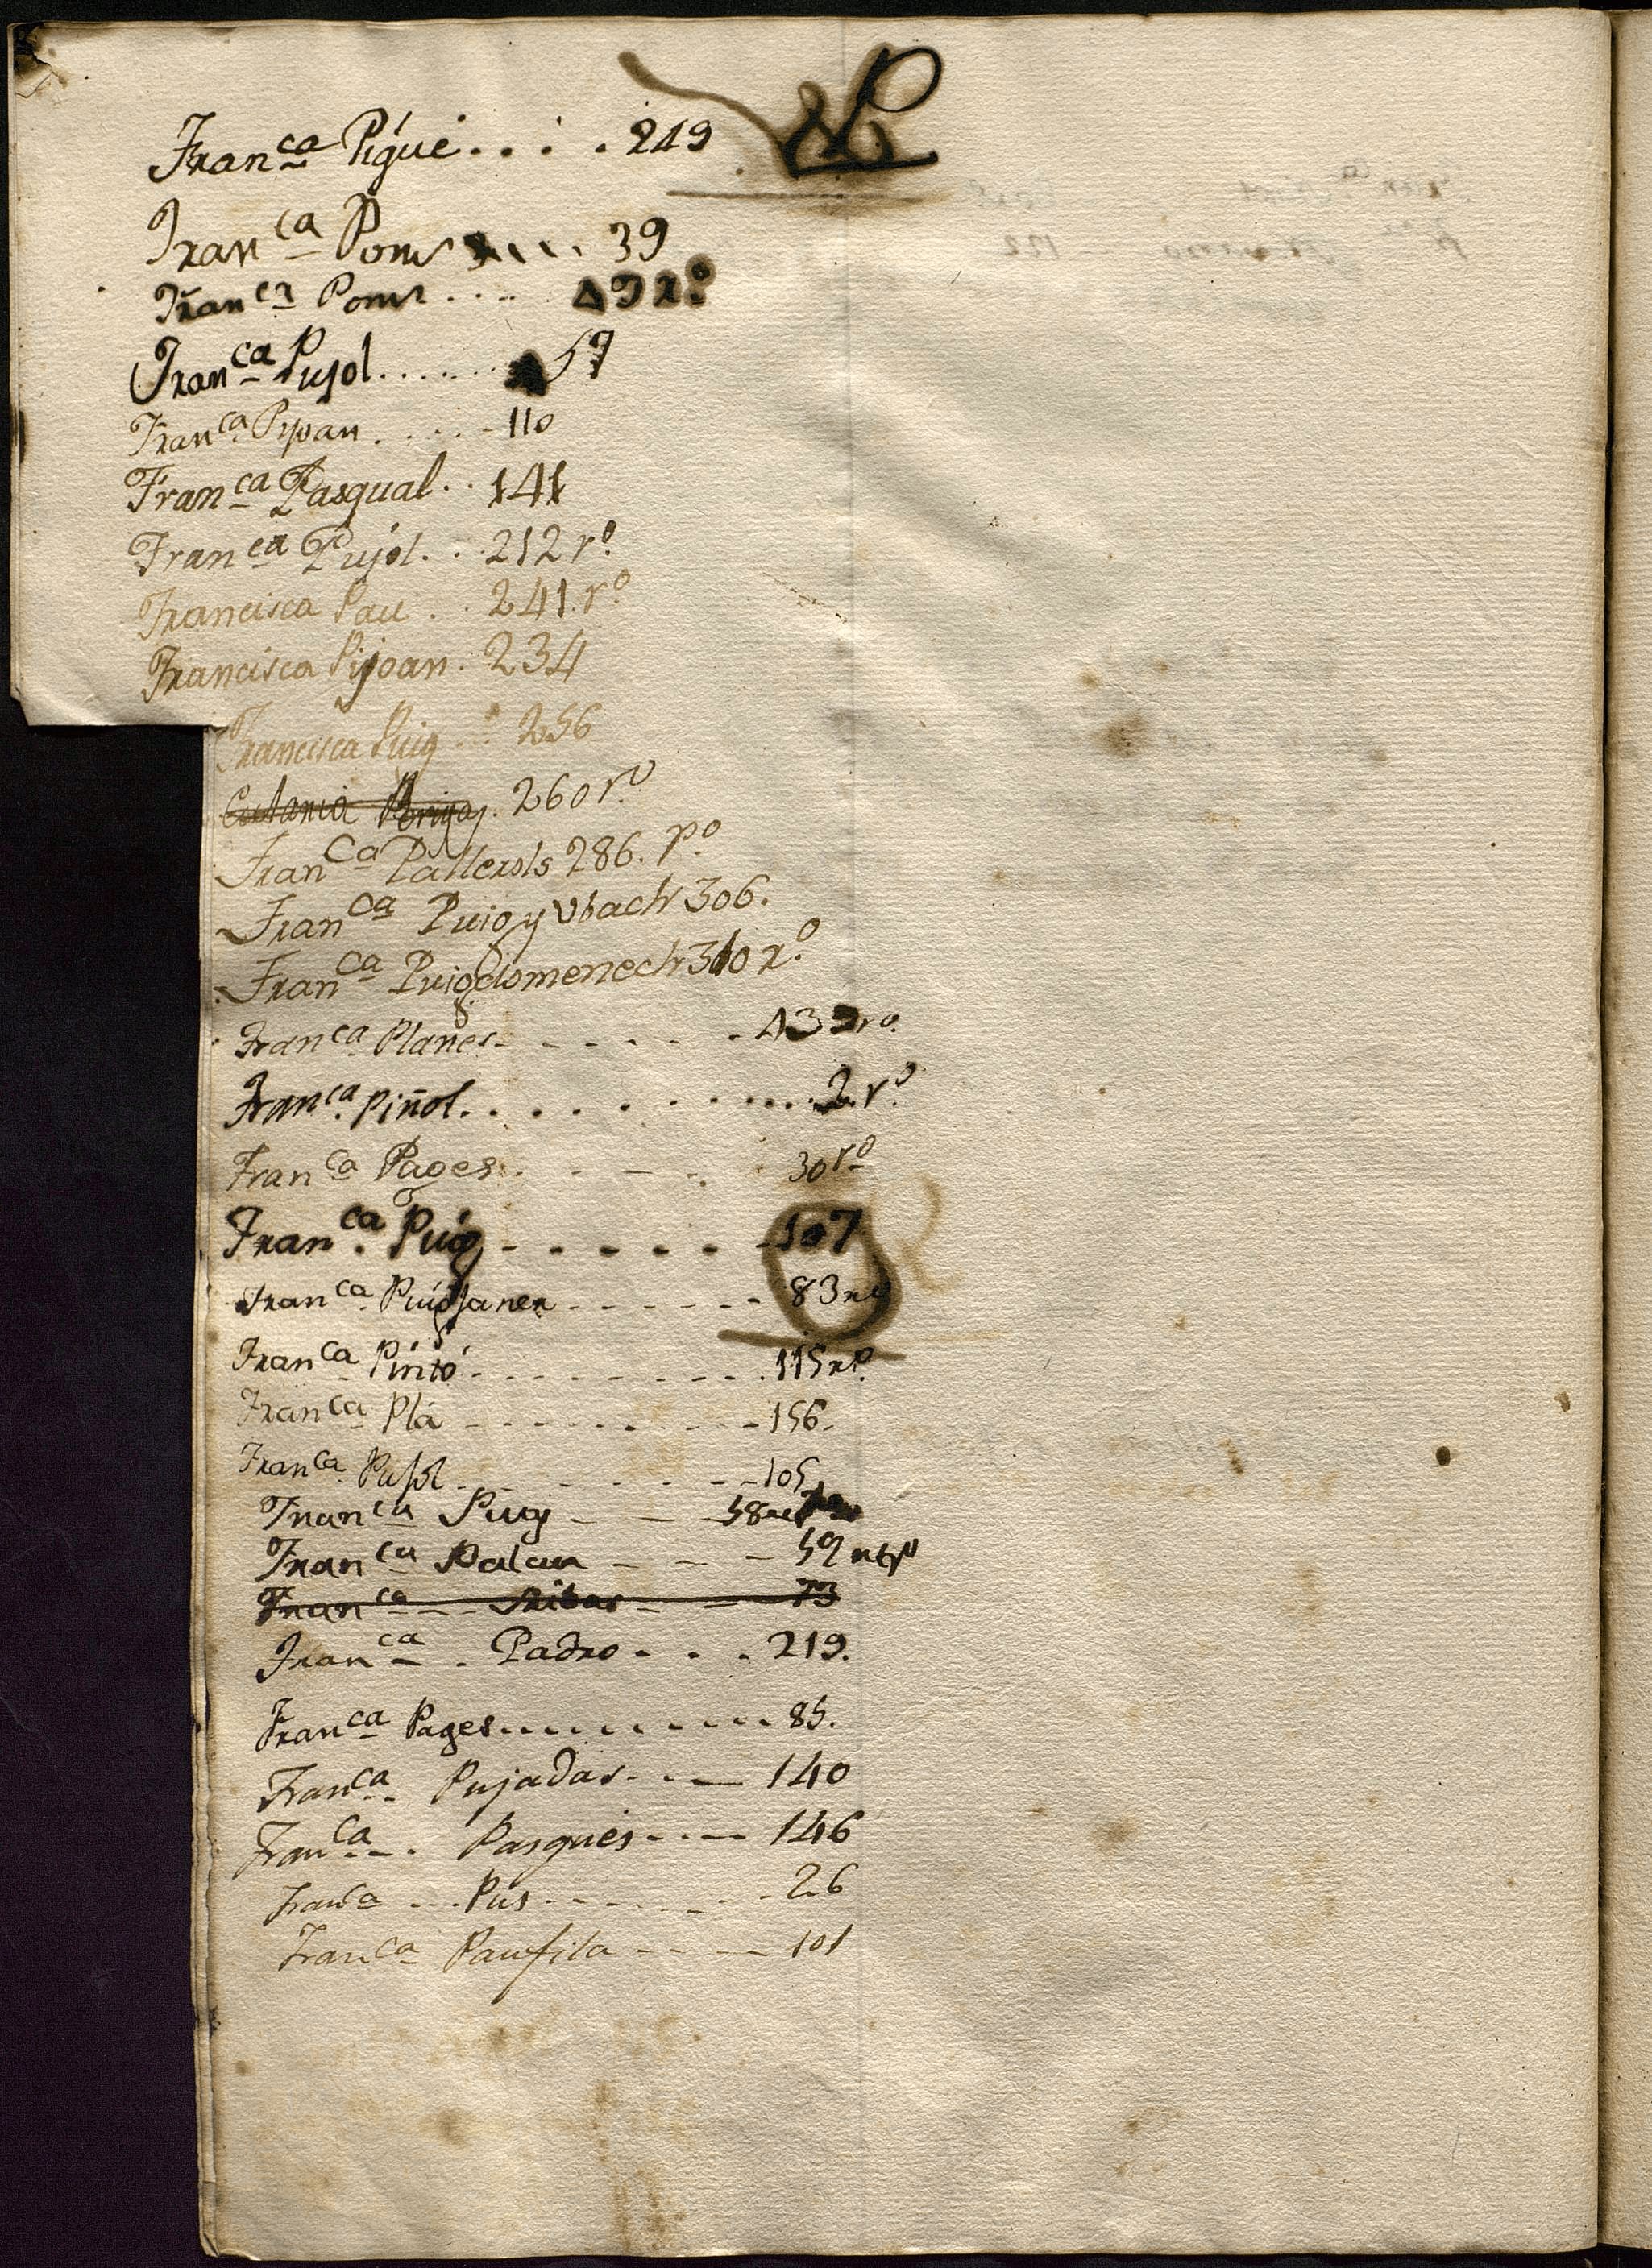 P
Fran.ca Pigué . . . . 249
Fran.ca Pons . . . . 39
Fran.ca Pons . . . . 49 r.o
Fran.ca Pujol . . . . . . 57
Fran.ca Pijoan . . . . . 110
Fran.ca Pasqual . . 141
Fran.ca Pujól . . . 212 r.o
Francisca Pau . . 241. r.o
Francisca Pijoan . 234
Francisca Puig . . 256
260 r.o
Fran.ca Pallerols 286. r.o
Fran.ca Puig y Vbach 306.
Fran.ca Puigdomenech 310 r.o
Fran.ca Planes - - - - - - 439 ro.
Fran.ca Piñol . . . . . . . . . 2. r.o
Fran.ca Pages . . - - . 30 r.o
Fran.ca Puig - - - - - - 107
Fran.ca Puigjaner - - - - - - 83 ro
Fran.ca Pintó - - - - - - - - 115 ro.
Fran.ca Plá - - - - - - - - 156.
Fran.ca Pujol - - - - - - - - 105
Fran.ca Puig - - - 58
Fran.ca Palau - - - - 59
Fran.ca - - Ribas - - 73
Fran.ca - . Padro - . . 219.
Fran.ca Pages - - - - - - - - - 85.
Fran.ca - Pujadas - . - 140
Fran.ca - . Pasques - - - - 146
Fran.ca - - . Pus - - - - - - 26
Fran.ca Paufila - - - - 101